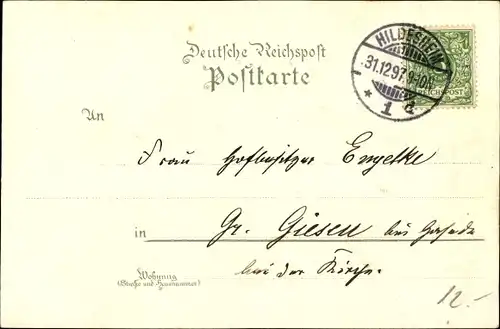 Deutsche Reichspost
Postkarte
HILDESHEIM
31.12.97. 9-10N.
* 1 c
REICHSPOST
An
Frau Hofbesitzer Engelke
in Gr. Giesen bei
bei der Kirche.
Wohnung
(Straße und Hausnummer)
12.-